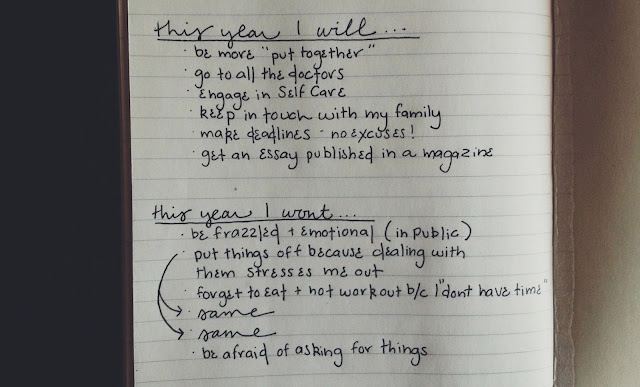 this year I will...
· be more "put together"
· go to all the doctors
· engage in Self Care
· keep in touch with my family
· make deadlines - no excuses!
· get an essay published in a magazine
this year I wont...
· be frazzled + emotional (in public)
· put things off because dealing with
them stresses me out
· forget to eat + not workout b/c I "dont have time"
· same
· same
· be afraid of asking for things